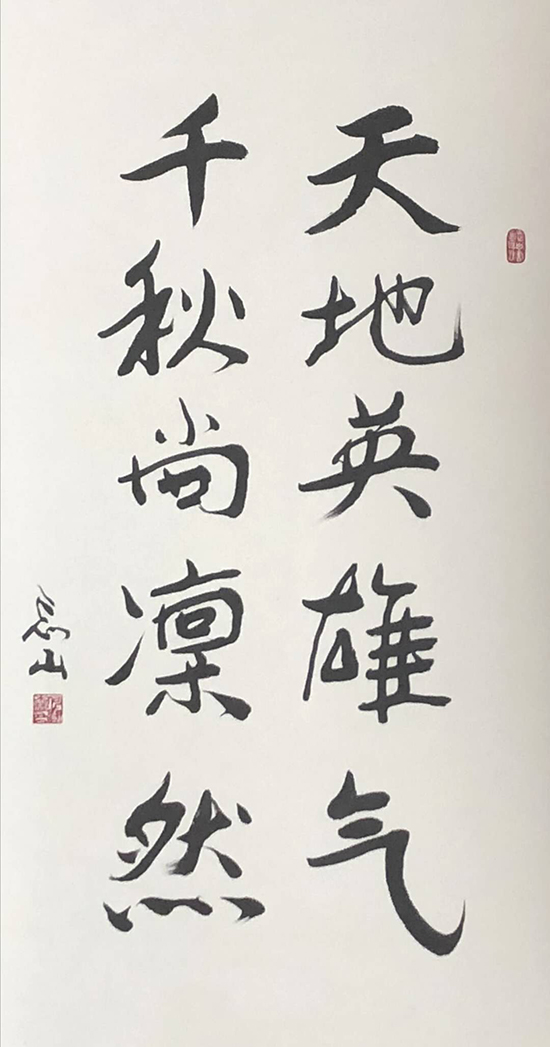 天地英雄气
千秋尚凛然